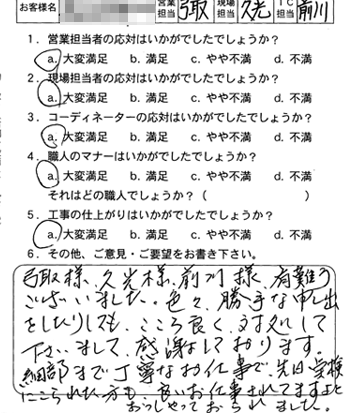 お客様名 営業担当 弓取 現場担当 久光 IC担当 前川
1．営業担当者の応対はいかがでしたでしょうか？
a. 大変満足 b. 満足 c. やや不満 d. 不満
2．現場担当者の応対はいかがでしたでしょうか？
a. 大変満足 b. 満足 c. やや不満 d. 不満
3．コーディネーターの応対はいかがでしたでしょうか？
a. 大変満足 b. 満足 c. やや不満 d. 不満
4．職人のマナーはいかがでしたでしょうか？
a. 大変満足 b. 満足 c. やや不満 d. 不満
それはどの職人でしょうか？（ ）
5．工事の仕上がりはいかがでしたでしょうか？
a. 大変満足 b. 満足 c. やや不満 d. 不満
6．その他、ご意見・ご要望をお書き下さい。
弓取様、久光様、前川様、有難う
ございました。色々、勝手な申し出
をしたりしても、こころ良く、対処して
下さいまして、感謝しております。
細部まで丁寧なお仕事で、先日、学検
にこられた方も、良いお仕事されてますよと
おっしゃっておられました。